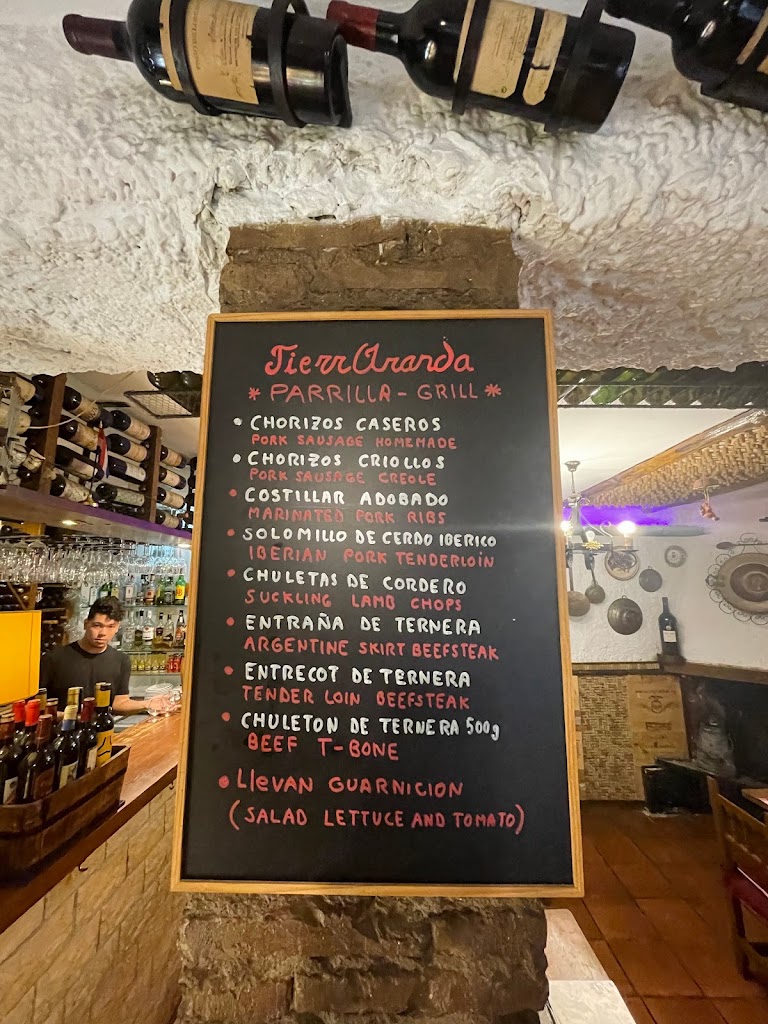 TierrAranda
* PARRILLA - GRILL *
• CHORIZOS CASEROS
PORK SAUSAGE HOMEMADE
• CHORIZOS CRIOLLOS
PORK SAUSAGE CREOLE
• COSTILLAR ADOBADO
MARINATED PORK RIBS
• SOLOMILLO DE CERDO IBERICO
IBERIAN PORK TENDERLOIN
• CHULETAS DE CORDERO
SUCKLING LAMB CHOPS
• ENTRAÑA DE TERNERA
ARGENTINE SKIRT BEEFSTEAK
• ENTRECOT DE TERNERA
TENDER LOIN BEEFSTEAK
• CHULETON DE TERNERA 500g
BEEF T-BONE
• LLEVAN GUARNICION
(SALAD LETTUCE AND TOMATO)